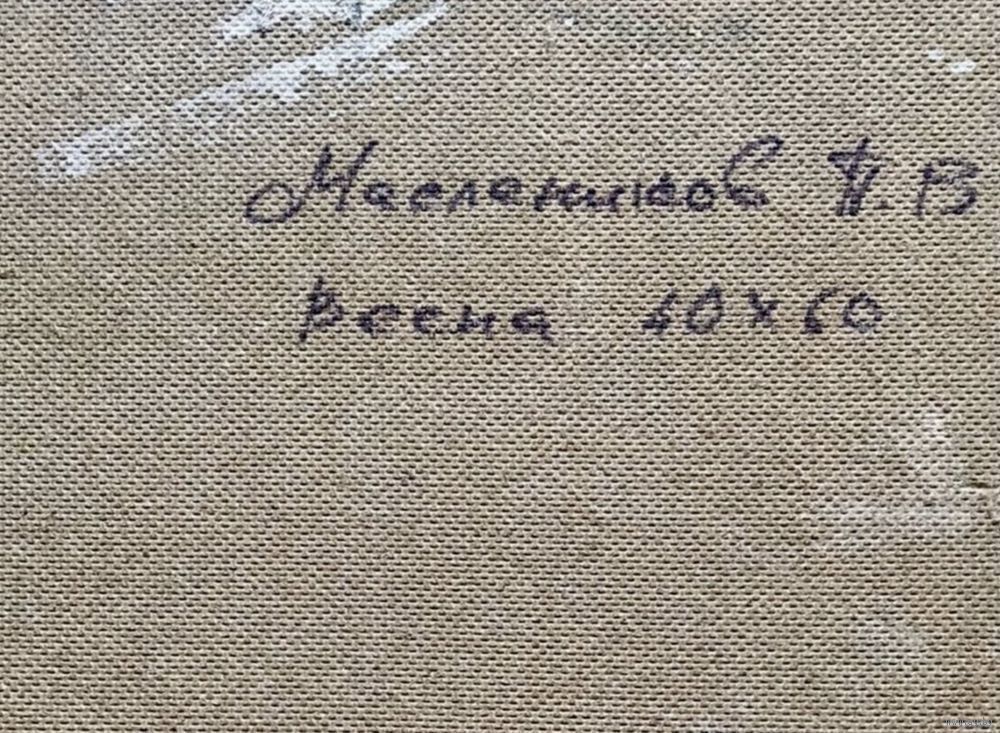 Масленников П.В
весна 40×60